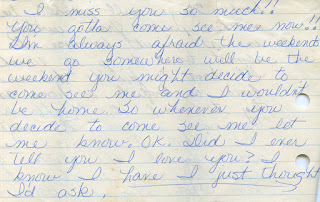 I miss you so much!!
You gotta come see me now!!
I'm always afraid the weekend
we go somewhere will be the
weekend you might decide to
come see me and I wouldn't
be home. So whenever you
decide to come see me let
me know. OK. Did I ever
tell you I love you? I
know I have I just thought
I'd ask.